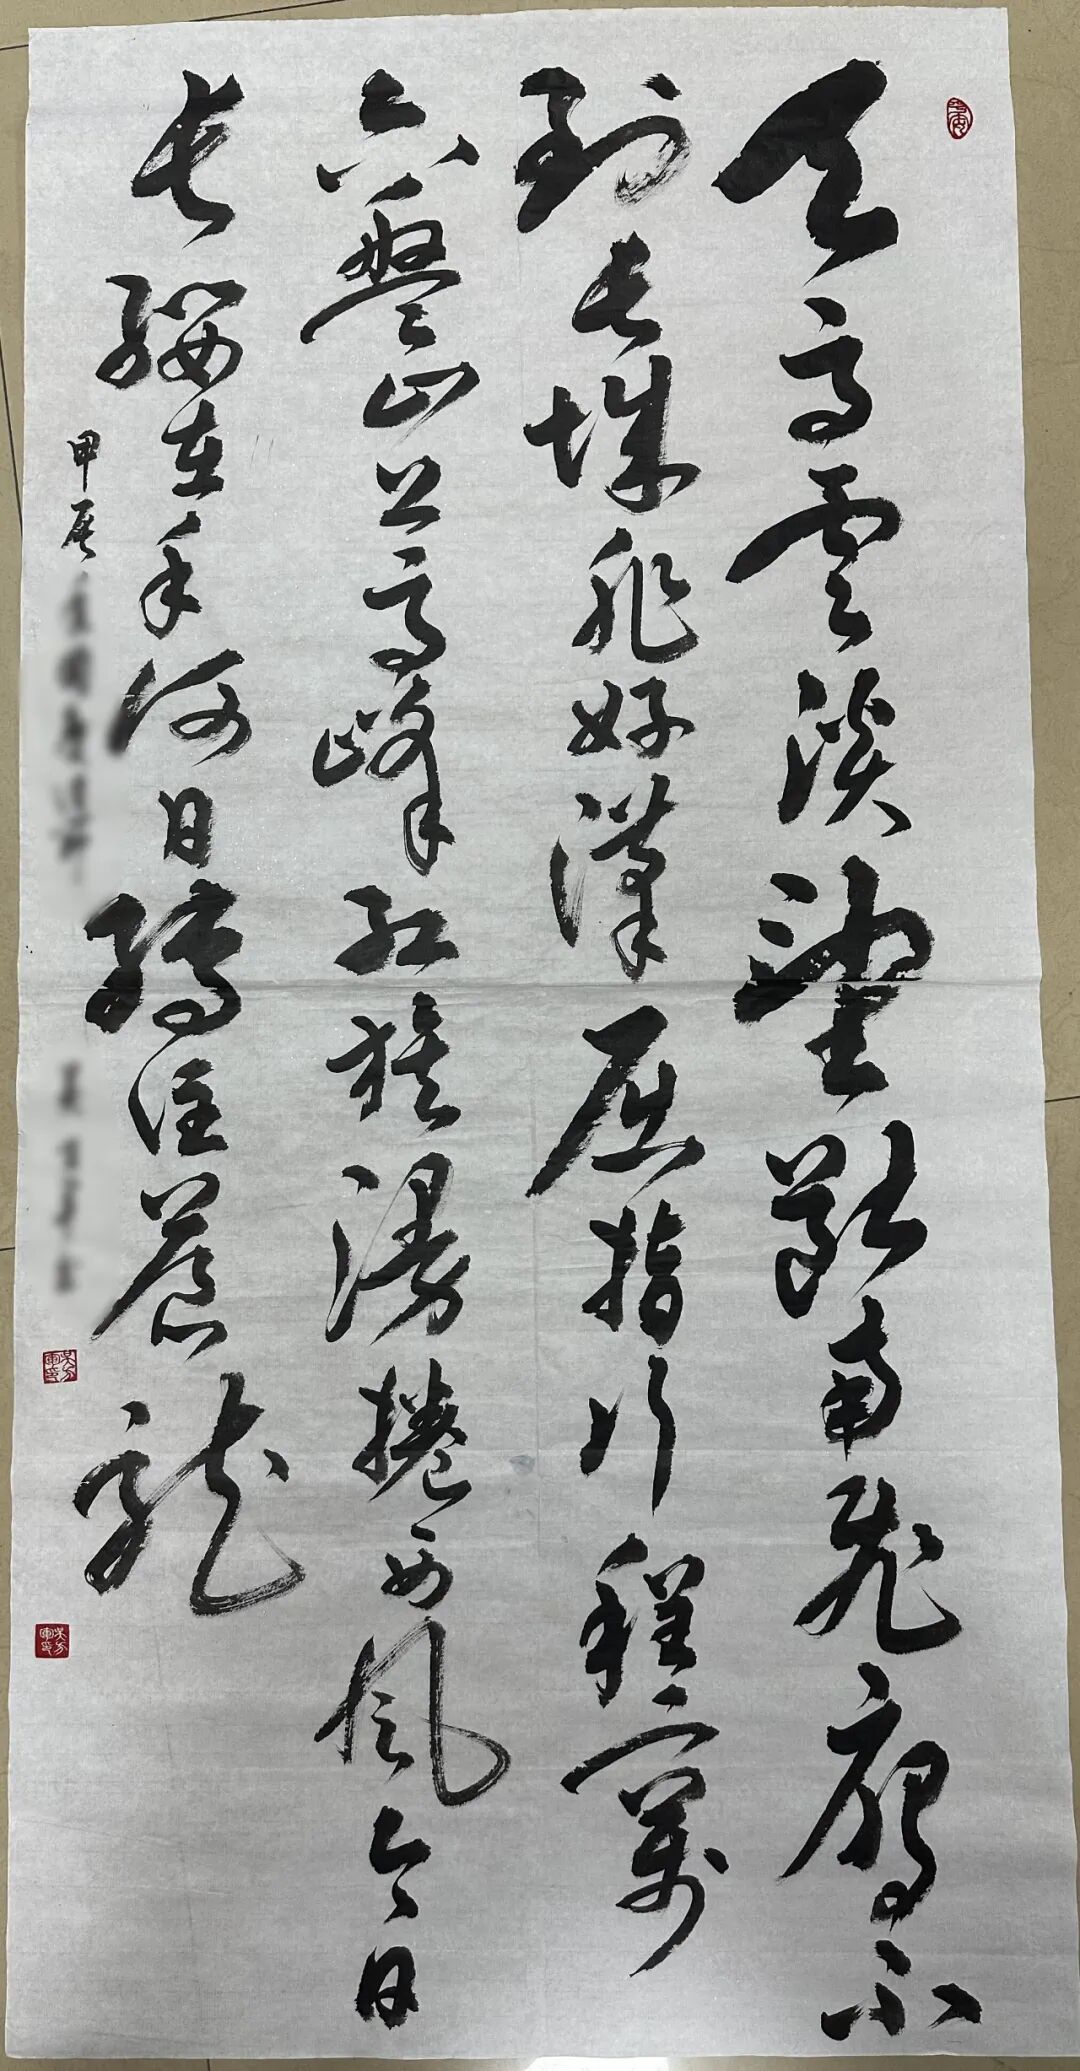 天高雲淡望斷南飛雁不
到長城非好漢屈指行程二萬
六盤山上高峰紅旗漫捲西風今日
長纓在手何日縛住蒼龍
甲辰